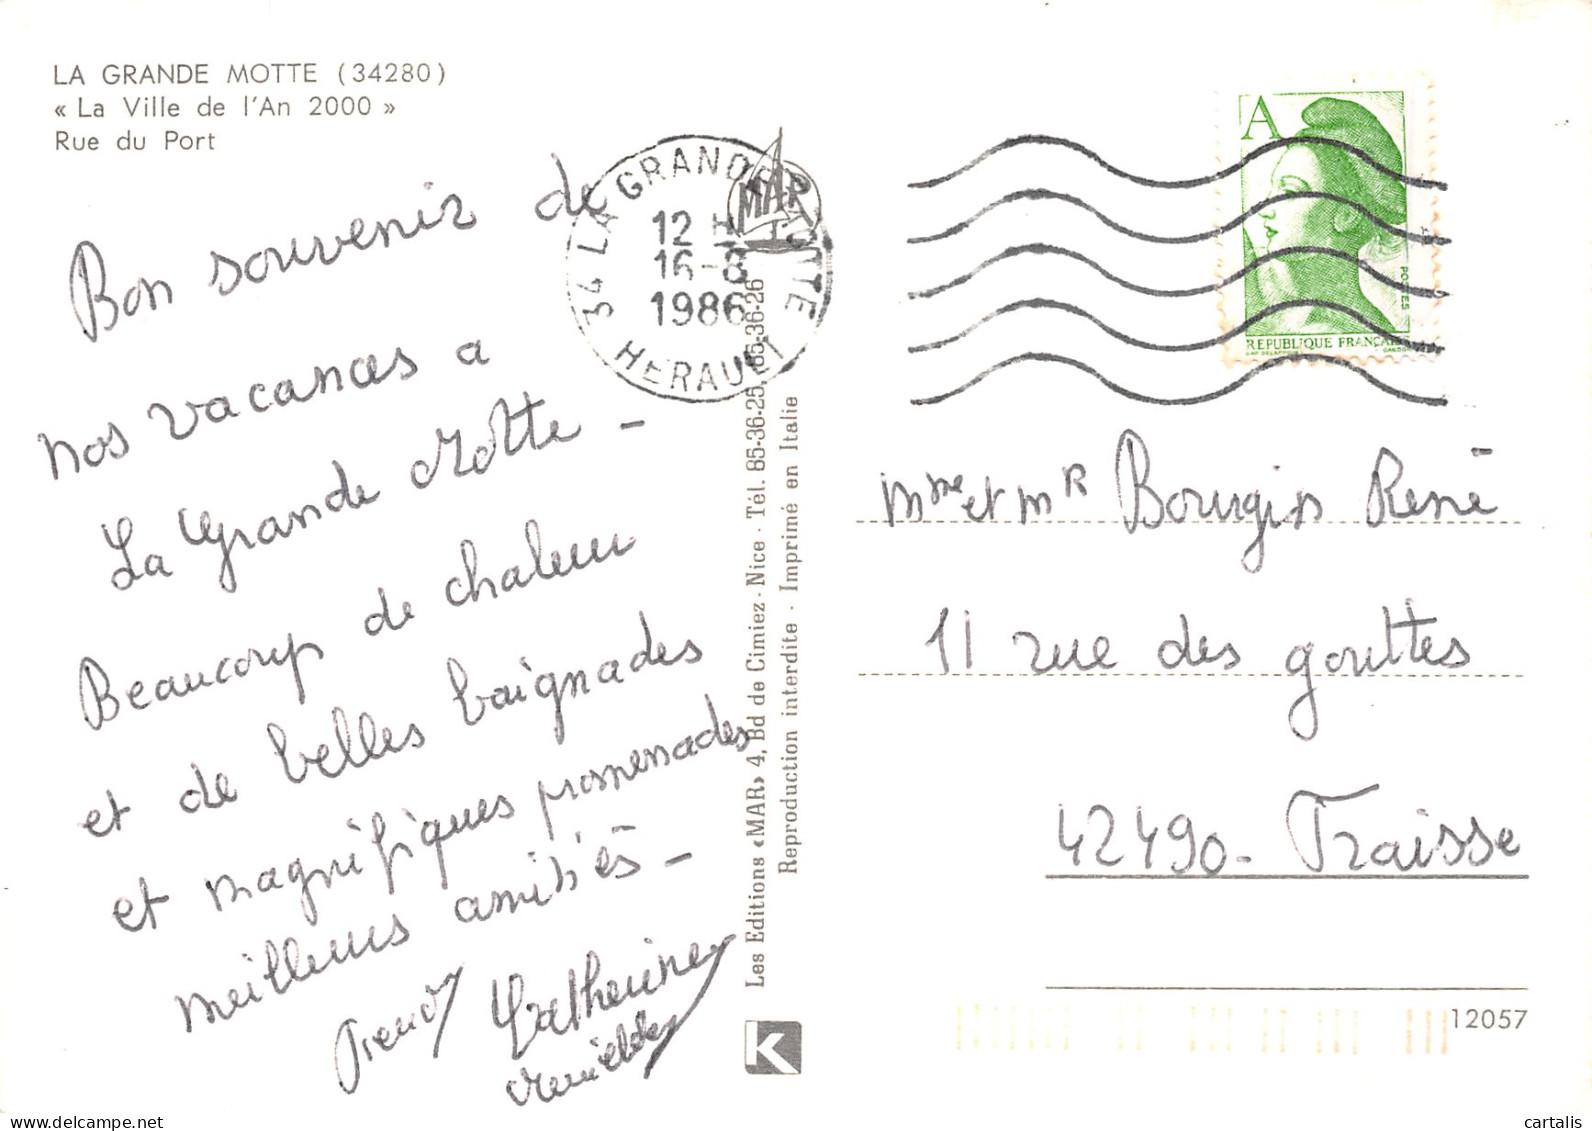 LA GRANDE MOTTE (34280)
« La Ville de l'An 2000 »
Rue du Port
Bon souvenir de
nos vacances a
La Grande Motte –
Beaucoup de chaleur
et de belles baignades
et magnifiques promenades
meilleurs amitiés –
Catherine
34 LA GRANDE MOTTE
12 H
16-8
1986
HERAULT
MAR
Les Editions «MAR» 4, Bd de Cimiez - Nice - Tél. 85-36-25, 85-36-26
Reproduction interdite - Imprimé en Italie
K
A
POSTES
REPUBLIQUE FRANÇAISE
Mme et MR Bourgin René
11 rue des gouttes
42490 - Fraisse
12057
delcampe.net
cartalis